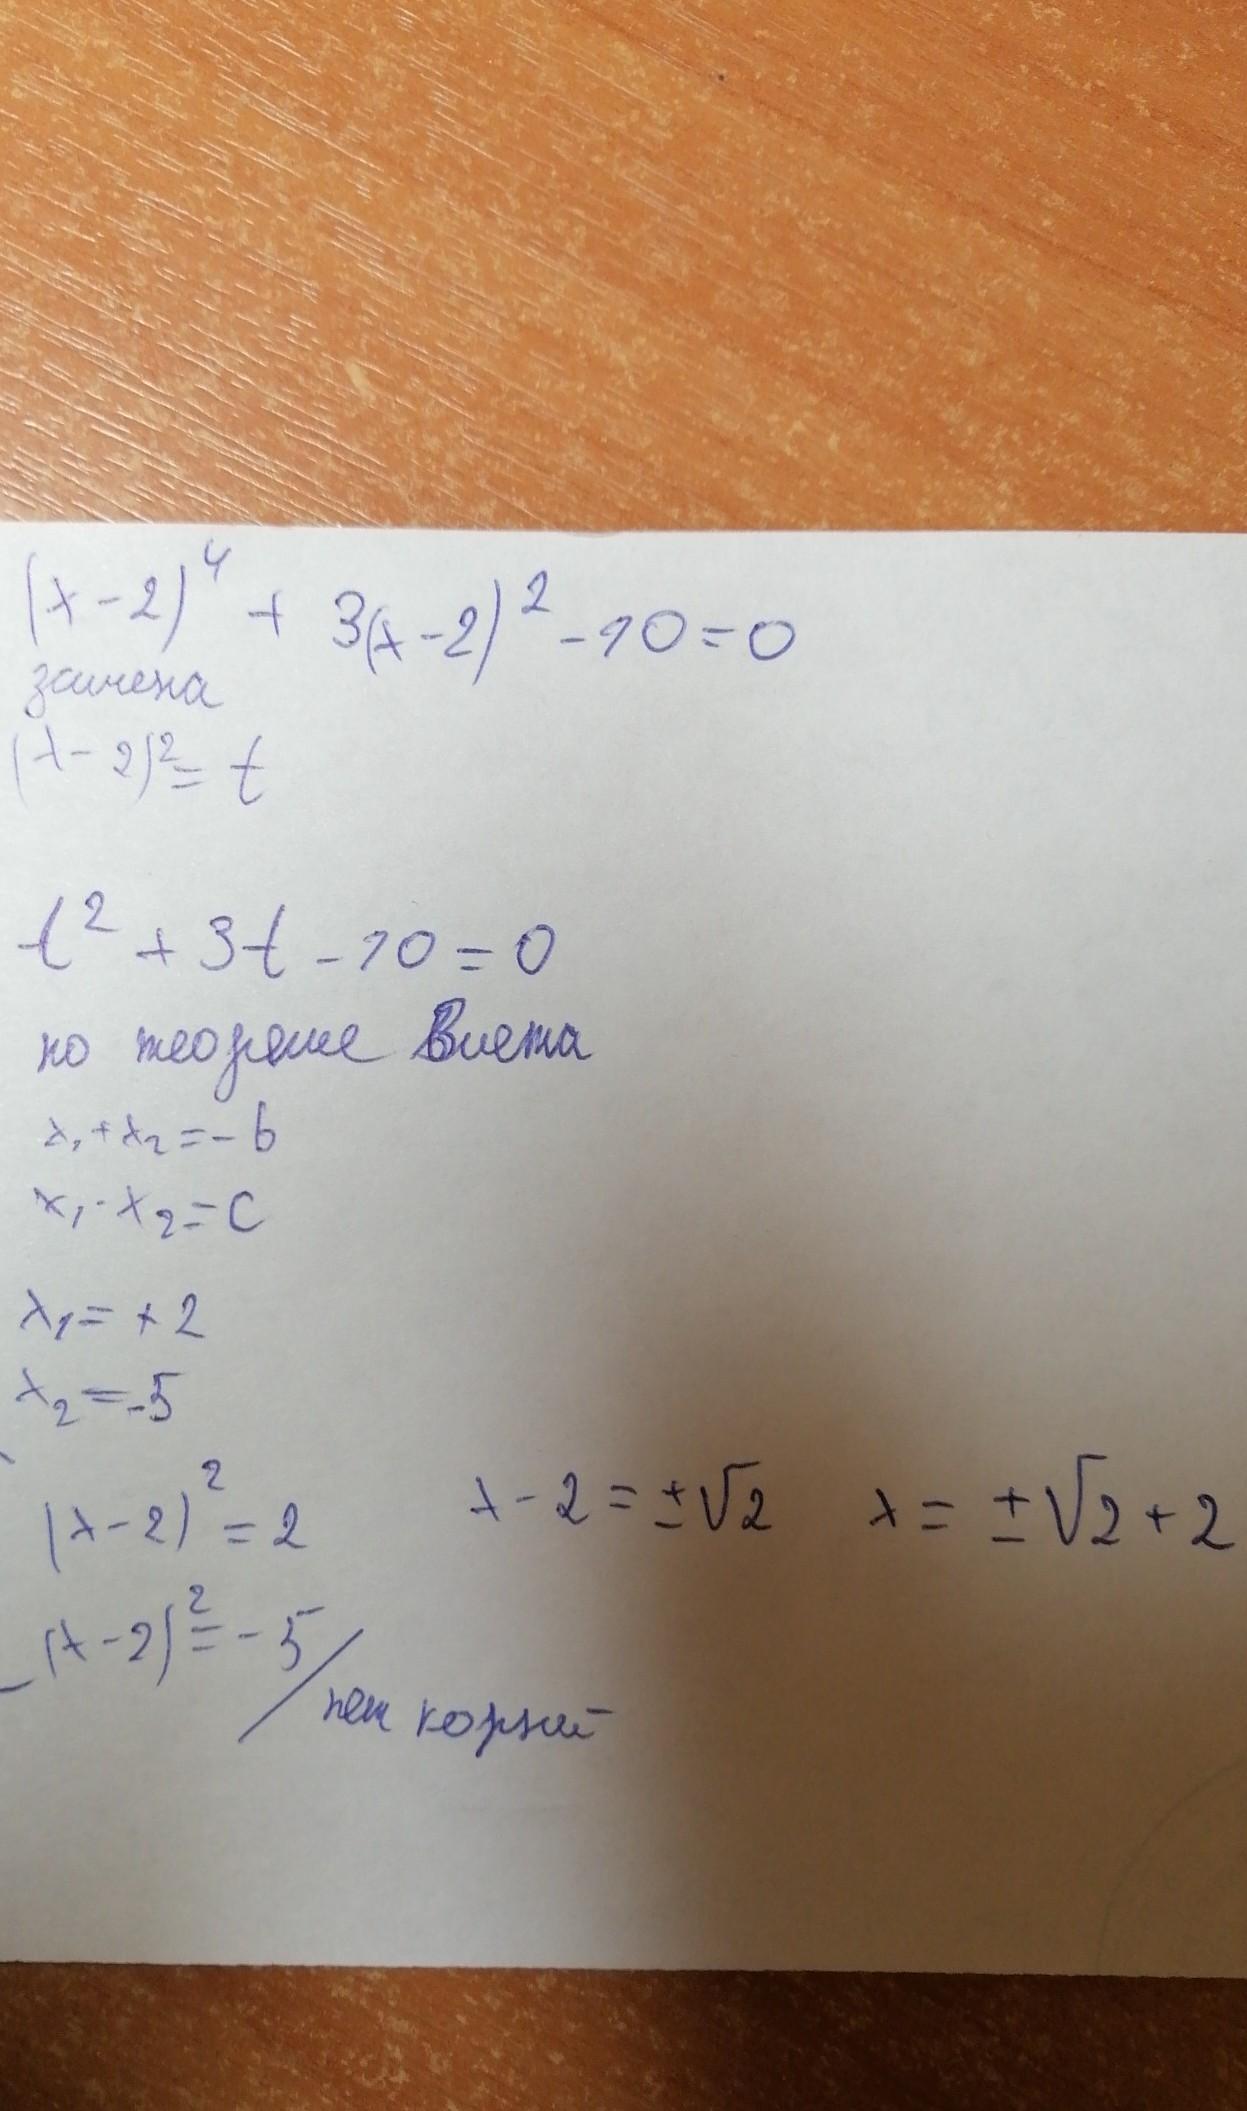 (x-2)⁴ + 3(x-2)² - 10 = 0
замена
(x-2)² = t
t² + 3t - 10 = 0
по теореме Виета
x₁+x₂ = -b
x₁·x₂ = c
x₁ = +2
x₂ = -5
(x-2)² = 2 x-2 = ±√2 x = ±√2+2
(x-2)² = -5
нет корней